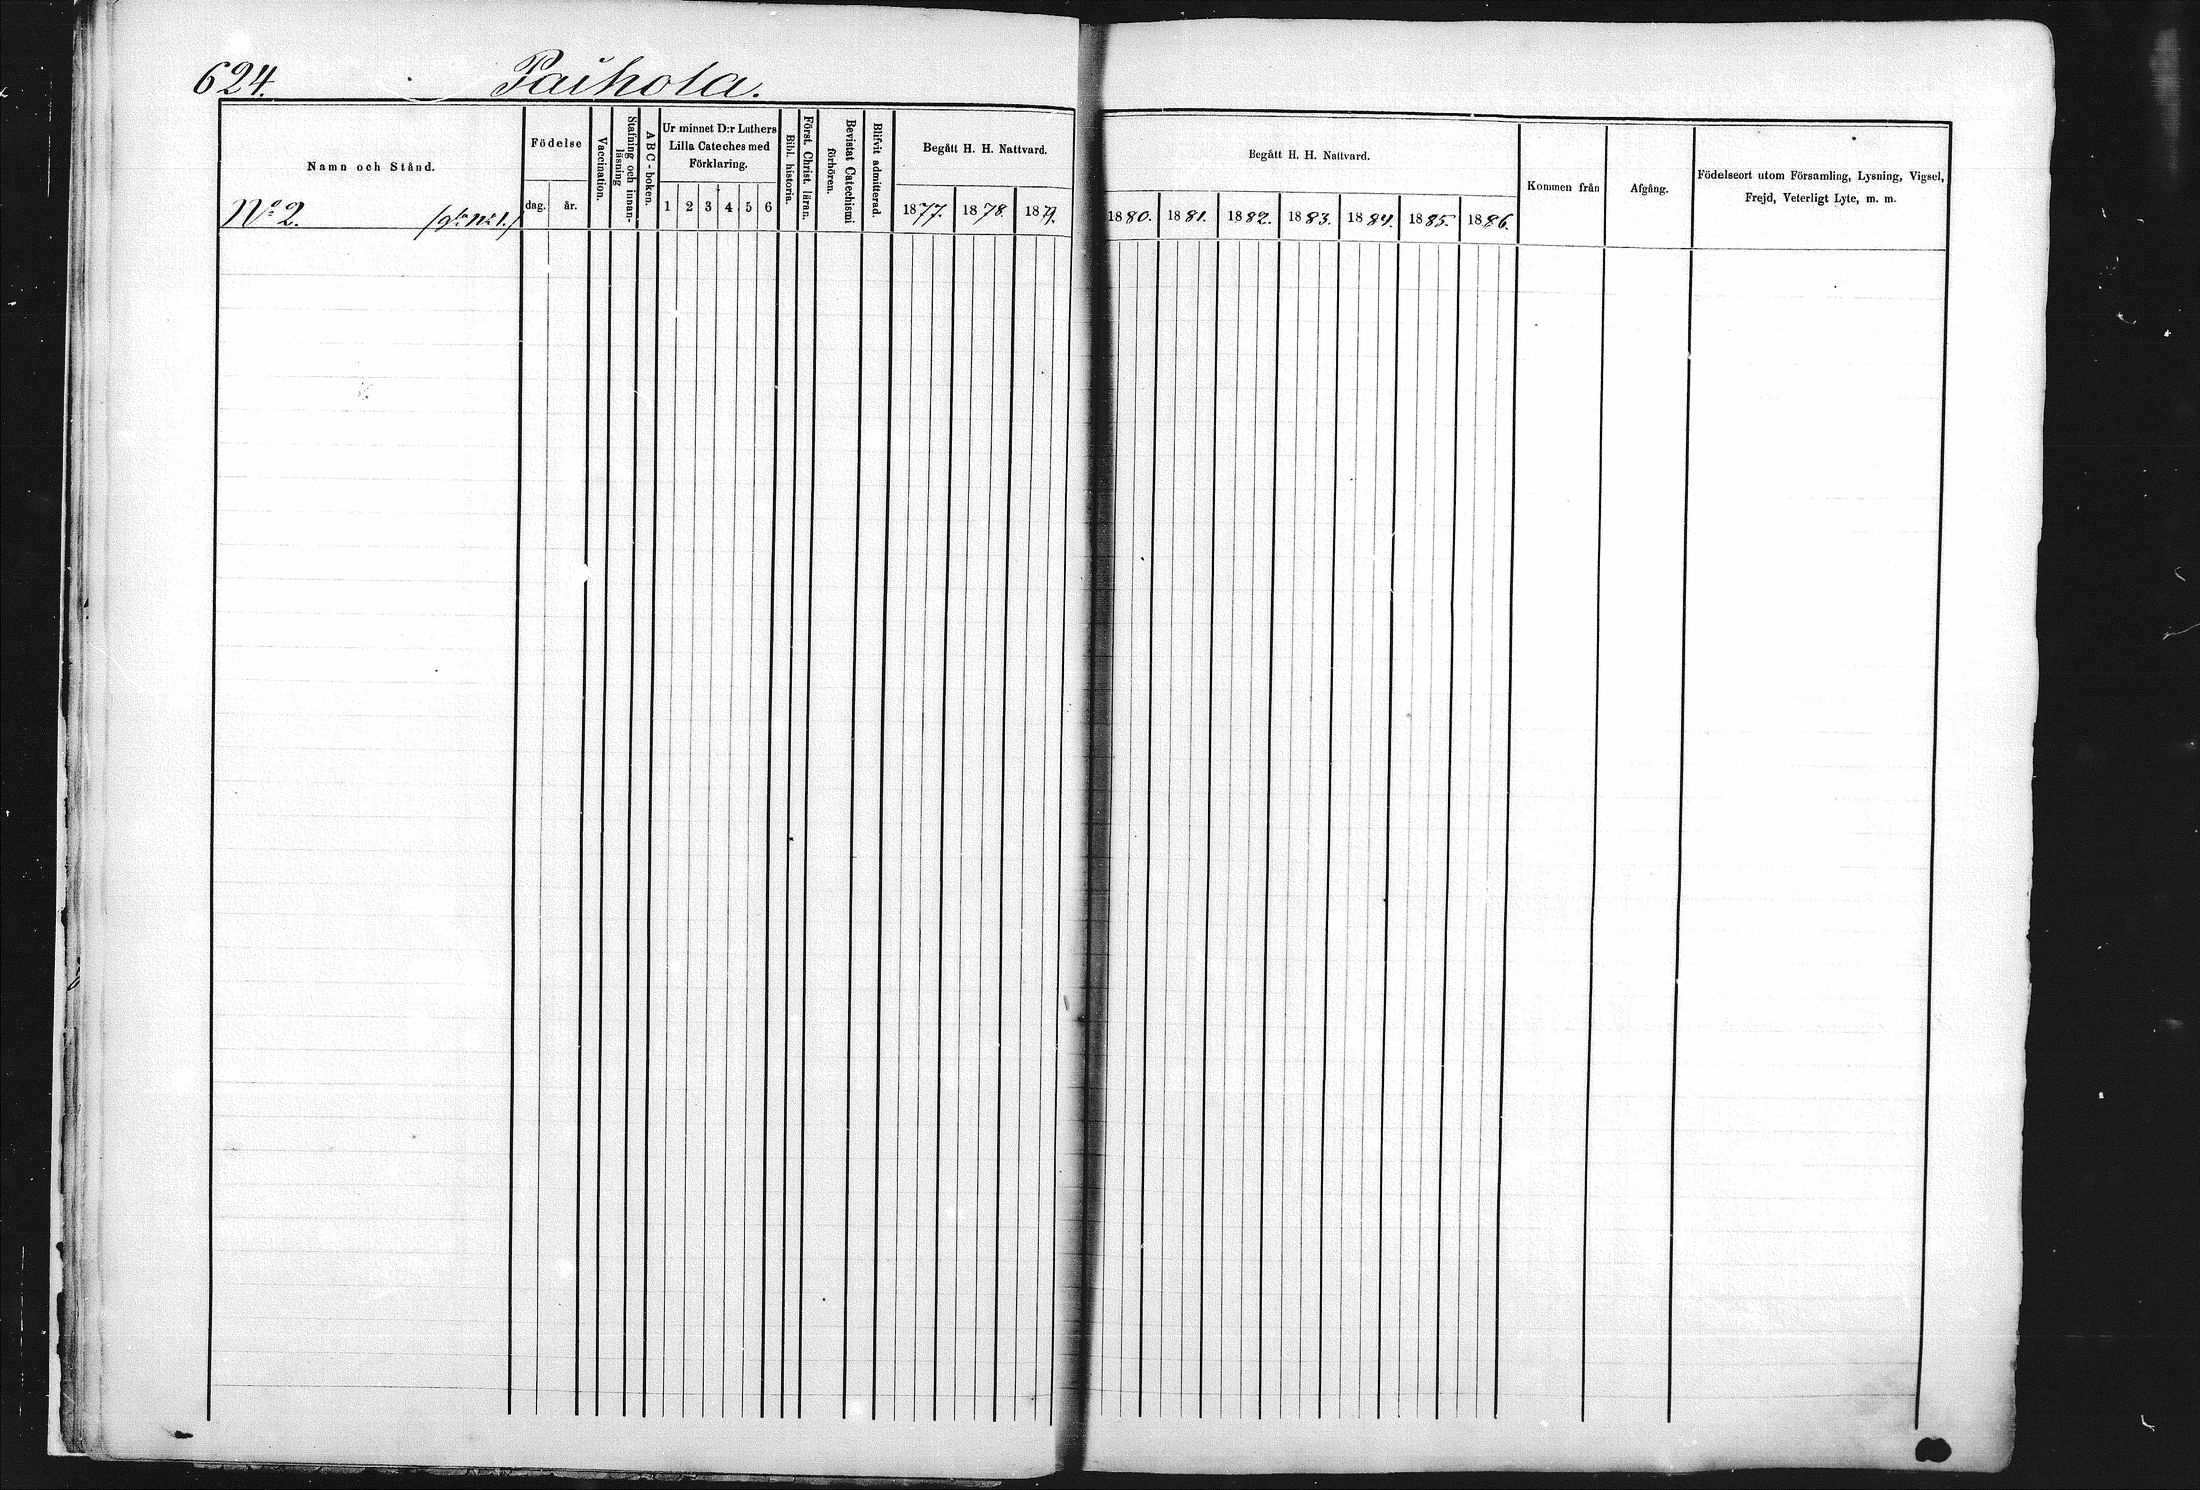 624. Paihola.
Namn och Stånd.
Födelse
dag. år.
Vaccination.
Stafning och innan-
läsning
ABC-boken.
Ur minnet D:r Luthers
Lilla Cateches med
Förklaring.
1 2 3 4 5 6
Bibl. historia.
Först. Christ. läran.
Bevistat Catechismi
förhören.
Blifvit admitterad.
Begått H. H. Nattvard.
1877. 1878. 1879.
Begått H. H. Nattvard.
1880. 1881. 1882. 1883. 1884. 1885. 1886.
Kommen från
Afgång.
Födelseort utom Församling, Lysning, Vigsel,
Frejd, Veterligt Lyte, m. m.
No 2. No 1.